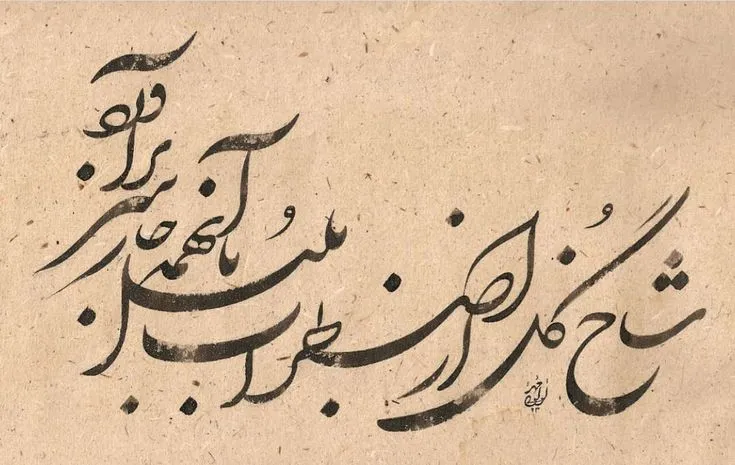 شاخ گل از اضطراب بلبل با آنهمه خار سر برآورد